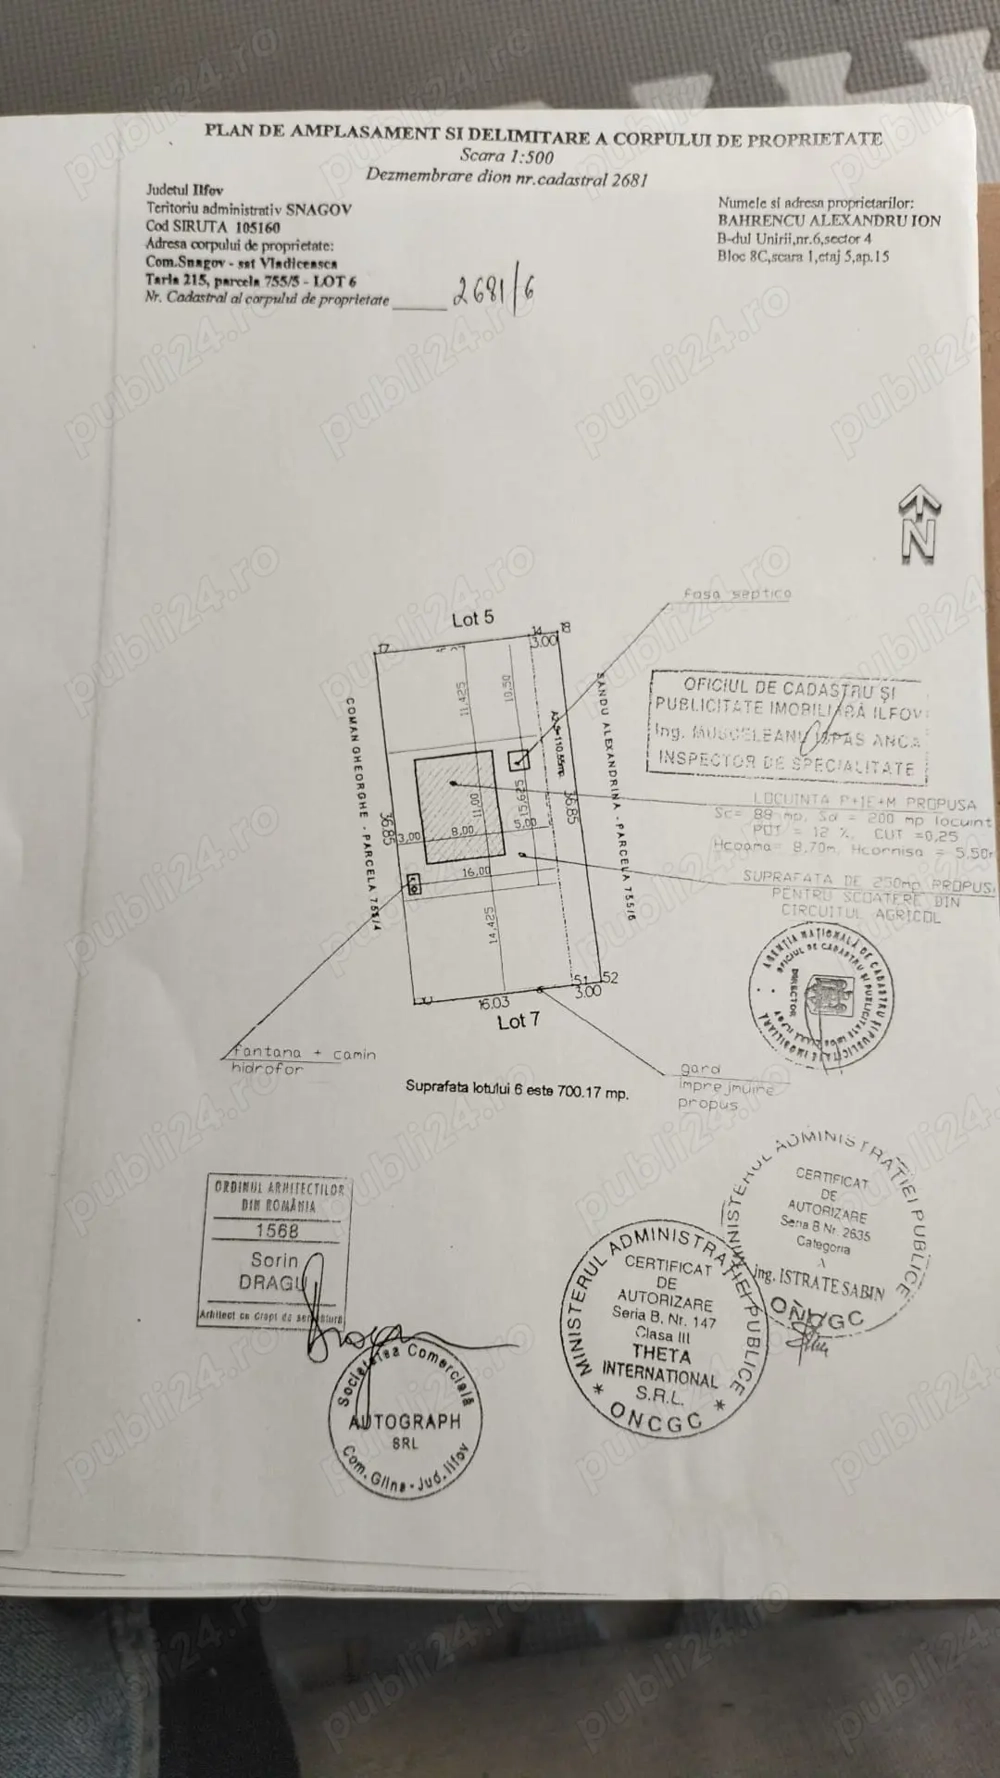 PLAN DE AMPLASAMENT SI DELIMITARE A CORPULUI DE PROPRIETATE
Scara 1:500
Dezmembrare dion nr.cadastral 2681
Judetul Ilfov
Teritoriu administrativ SNAGOV
Cod SIRUTA 105160
Adresa corpului de proprietate:
Com.Snagov - sat Vladiceasca
Tarla 215, parcela 755/5 - LOT 6
Nr. Cadastral al corpului de proprietate 2681/6
Numele si adresa proprietarilor:
BAHRENCU ALEXANDRU ION
B-dul Unirii,nr.6,sector 4
Bloc 8C,scara 1,etaj 5,ap.15
N
fosa septica
Lot 5
17
14
18
3.00
11,425
10,50
COMAN GHEORGHE - PARCELA 755/4
SANDU ALEXANDRINA - PARCELA 755/6
36.85
36.85
11,00
15,625
3,00
8,00
5,00
16,00
14,425
51
52
16.03
3.00
Lot 7
OFICIUL DE CADASTRU ȘI
PUBLICITATE IMOBILIARĂ ILFOV
Ing. MUSCELEANU ISPAS ANCA
INSPECTOR DE SPECIALITATE
LOCUINTA P+1E+M PROPUSA
Sc= 88 mp, Sd = 200 mp locuint
POT = 12 %, CUT =0,25
Hcoama= 8.70m, Hcornisa = 5.50m
SUPRAFATA DE 250mp PROPUS
PENTRU SCOATERE DIN
CIRCUITUL AGRICOL
AGENȚIA NAȚIONALĂ DE CADASTRU ȘI PUBLICITATE IMOBILIARĂ
OFICIUL DE CADASTRU ȘI PUBLICITATE
DIRECTOR
fantana + camin
hidrofor
gard
imprejmuire
propus
Suprafata lotului 6 este 700.17 mp.
ORDINUL ARHITECTILOR
DIN ROMÂNIA
1568
Sorin
DRAGU
Arhitect cu drept de semnătura
Societatea Comercială
AUTOGRAPH
SRL
Com. Glina - Jud. Ilfov
MINISTERUL ADMINISTRAȚIEI PUBLICE
CERTIFICAT
DE
AUTORIZARE
Seria B, Nr. 147
Clasa III
THETA
INTERNATIONAL
S.R.L.
* ONCGC *
MINISTERUL ADMINISTRAȚIEI PUBLICE
CERTIFICAT
DE
AUTORIZARE
Seria B Nr. 2635
Categoria
A
Ing. ISTRATE SABIN
ONCGC
publi24.ro